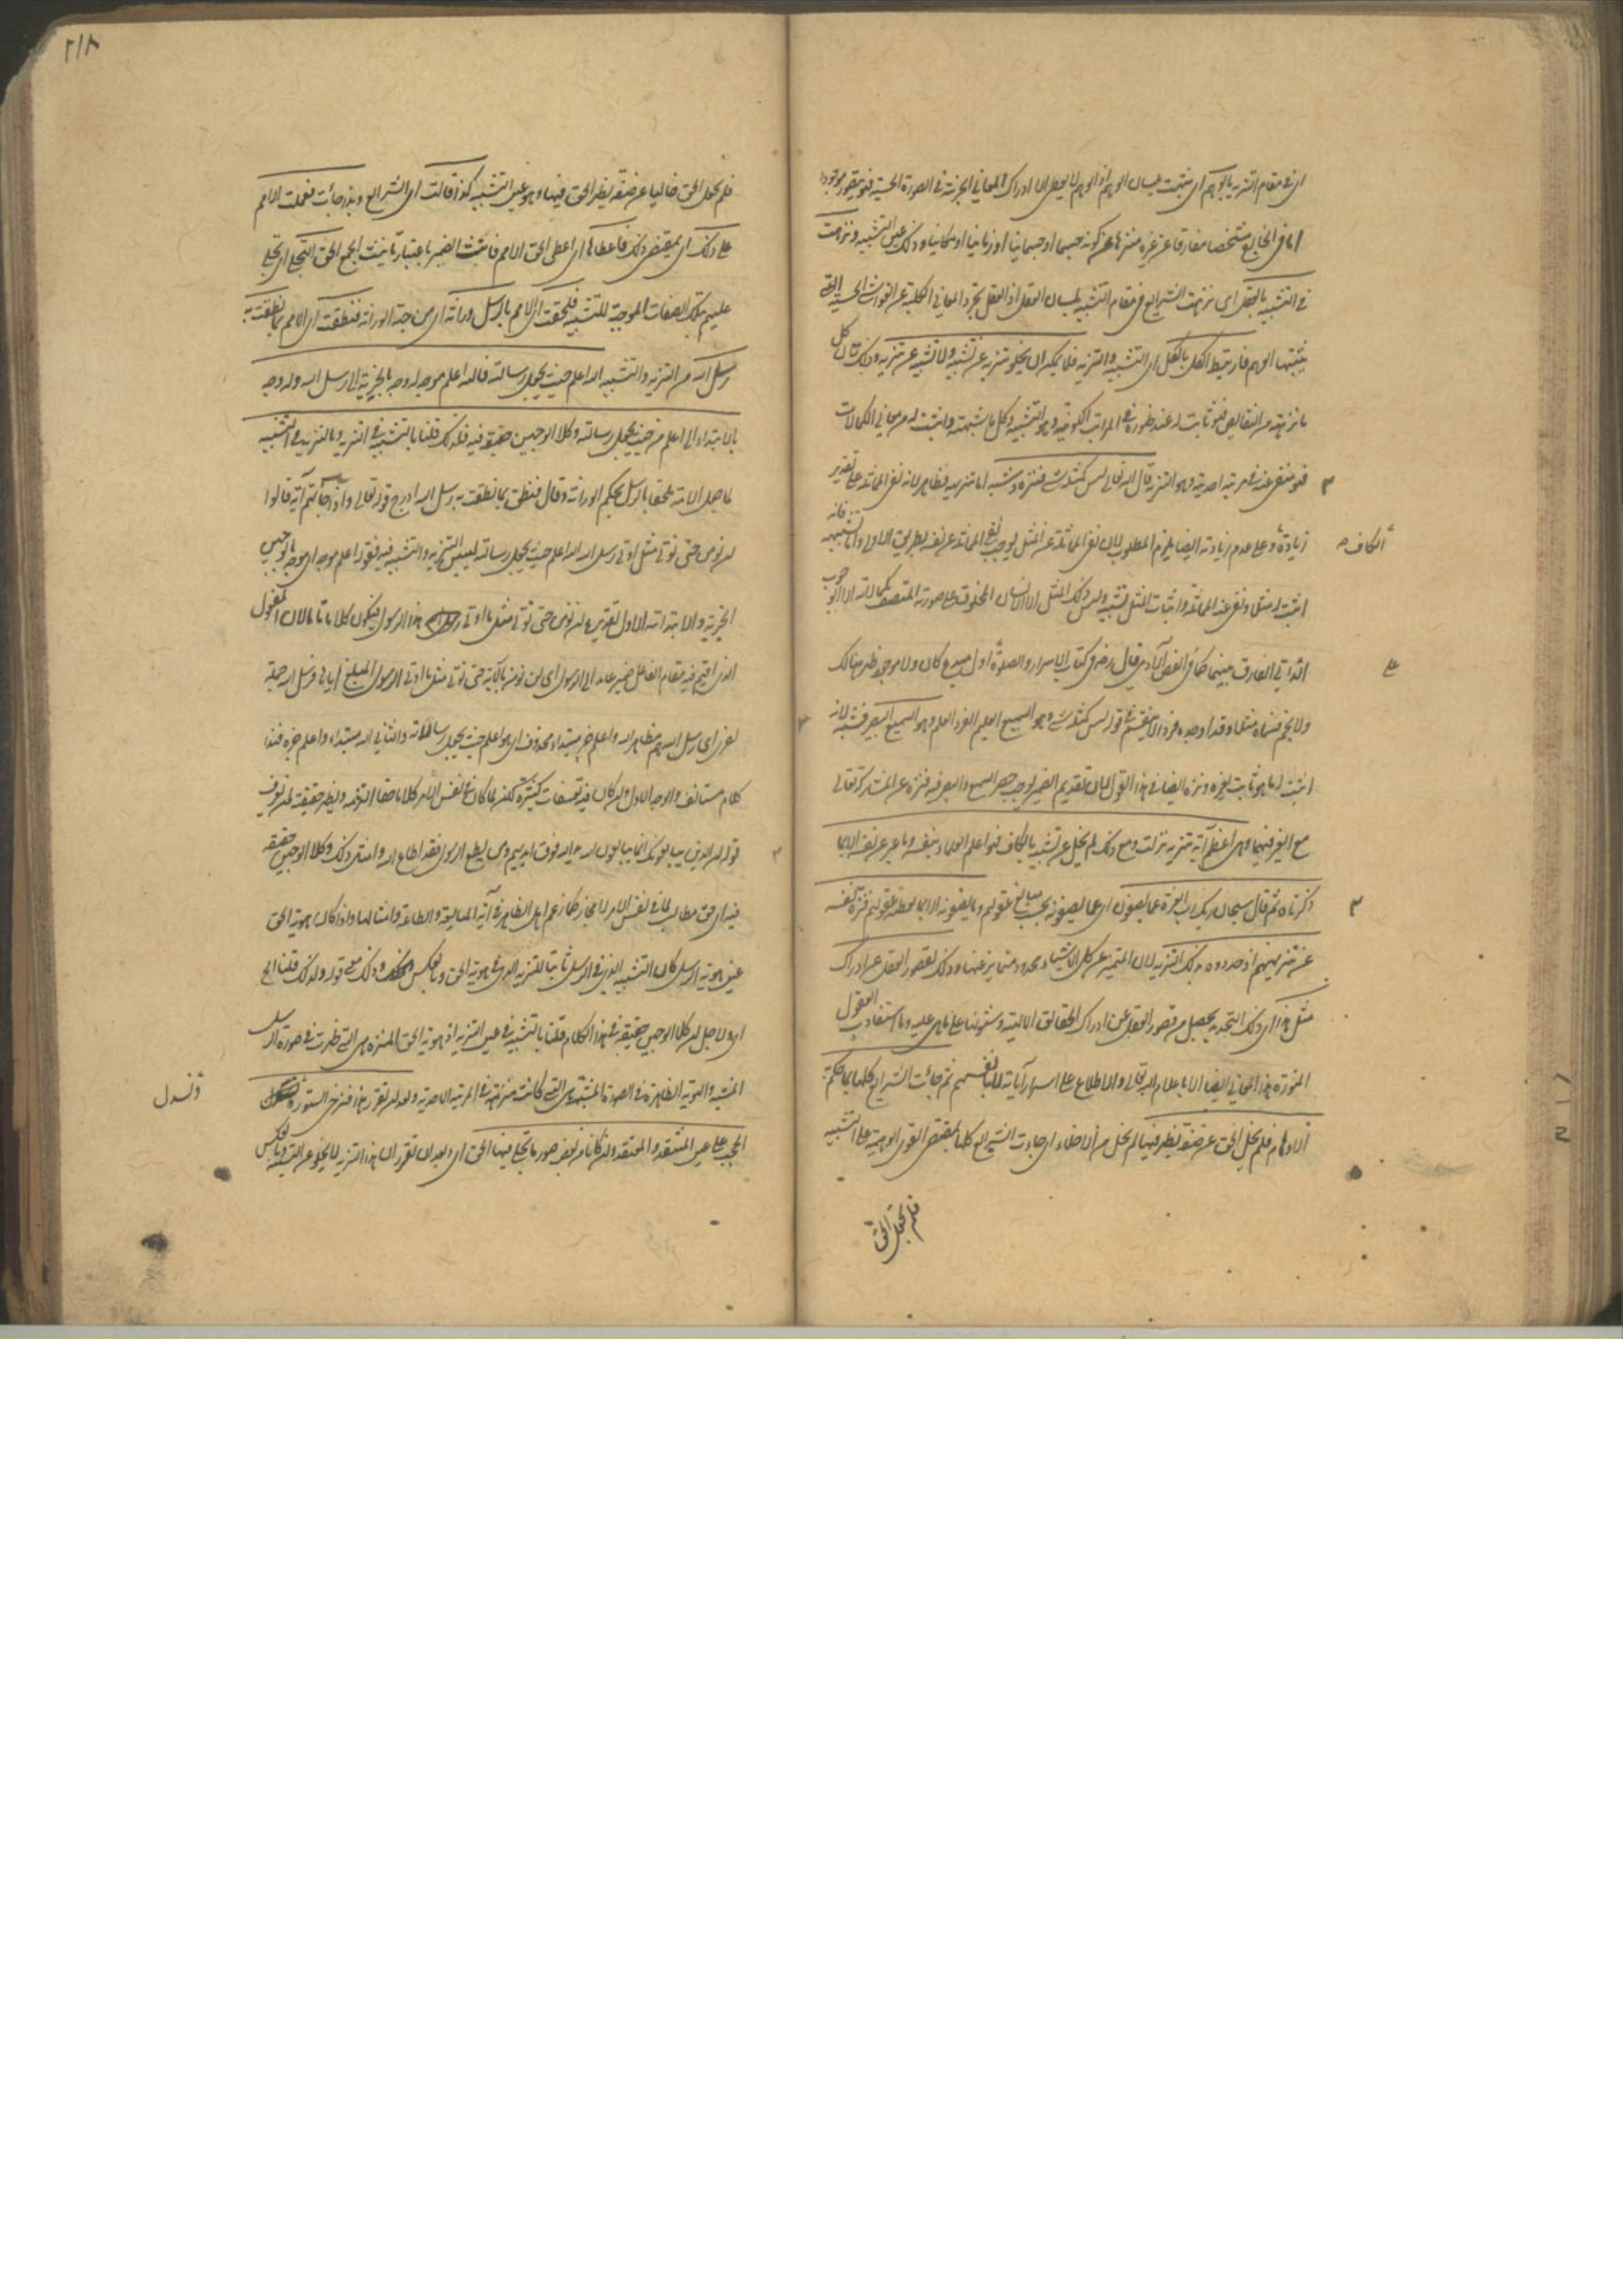 اى فى مقام التنزيه بالوهم اى شبهت بلسان الوهم اذ الوهم لا يعطى الا ادراك المعاني الجزئية فى الصورة الحسية فهو يتصور موجودا
اما فى الخارج مشخصا مفارقا عن غيره منزها عن كونه جسما او جسمانيا او زمانيا او مكانيا وذلك عين التشبيه ونزهت
فى التشبيه بالعقل اى نزهت الشرايع فى مقام التشبيه بلسان العقل اذ العقل يجرد المعاني الكلية عن الغواشى الحسية التى
يثبتها الوهم فارتبط الكل بالكل اى التشبيه والتنزيه فلا يمكن ان يخلو تنزيه عن تشبيه ولا تشبيه عن تنزيه وذلك لان كل
ما نزهته من النقايص فهو ثابت له عند ظهوره فى المراتب الكونية وهو التشبيه وكل ما شبهته واثبت له من معاني الكمالات
فهو منفى عنه فى مرتبة احديته وهو التنزيه قال الله تعالى ليس كمثله شئ فنزه وشبه اما تنزيهه فظاهر لانه نفى المماثلة على تقدير
زيادة وعلى عدم زيادته ايضا يلزم المطلوب لان نفى المماثلة عن المثل يوجب نفى المماثلة عن نفسه بطريق الاولى واما تشبيهه فانه
الكاف
اثبت له مثلا ونفى عنه المماثلة واثبات المثل تشبيه وليس ذلك المثل الا الانسان المخلوق على صورته المتصف بكمالاته الا الوجوب
الذاتى الفارق بينهما
ولا نجم فسماه مثلا وقد اوجده فردا لا ينقسم فى قوله ليس كمثله شئ وهو السميع العليم الفرد العلم وهو السميع البصير فشبه لانه
اثبت له ما هو ثابت لغيره ونزه ايضا فى هذا القول لان تقديم الضمير يوجب حصر السمع والبصر فيه فنزه عن المشاركة تعالى
مع الغير فيهما وهى اعظم آية تنزيه نزلت ومع ذلك لم تخل عن تشبيه بالكاف فهو اعلم العلماء بنفسه وما عبر عن نفسه الا بما
ذكرناه ثم قال سبحان ربك رب العزة عما يصفون اى عما يصفونه بحسب مبالغ عقولهم وما يصفونه الا بما تعطيه عقولهم فنزه نفسه
عن تنزيههم اذ حددوه بذلك التنزيه لان المتميز عن كل الاشياء محدود متمايز عنها وذلك لقصور العقل عن ادراك
مثل هذا اى ذلك التحديد يحصل من قصور العقل عن ادراك الحقائق الالهية وشؤنها على ما هى عليه وما استفادت العقول
المنورة هذا المعاني ايضا الا باعلام الله تعالى والاطلاع على اسرار آياته لا بانفسهم ثم جائت الشرايع كلها بما تحكم به
الاوهام فلم تخل الحق عن صفة يظهر فيها
فلم تخل الحق
٢١٨
فلم تخل الحق خاليا عن صفة يظهر الحق فيها وهو عين التشبيه كذا قالت اى الشرايع وبذا جائت فعملت الامم
على ذلك اى بمقتضى ذلك فاعطاها اى اعطى الحق الامم فانث الضمير باعتبار تانيث الجمع الحق التجلى اى تجلى
عليهم بتلك الصفات الموجبة للتشبيه فلحقت اى الامم بالرسل وراثة اى من جهة الوراثة فنطقت اى الامم بما نطقت به
رسل الله من التنزيه والتشبيه الله اعلم حيث يجعل رسالته فالله اعلم موجه له وجه بالخبرية الى رسل الله وله وجه
بالابتداء الى اعلم من حيث يجعل رسالته وكلا الوجهين حقيقة فيه فلذلك قلنا بالتشبيه فى التنزيه وبالتنزيه فى التشبيه
لما جعل الامة ملحقا بالرسل بحكم الوراثة وقال فنطق بما نطقت به رسل الله ادرج قوله تعالى واذا جائتهم آية قالوا
لن نؤمن حتى نؤتى مثل ما اوتى رسل الله الله اعلم حيث يجعل رسالته ليبين التنزيه والتشبيه فيه فقوله اعلم موجه اى موجه بالوجهين
الخبرية والابتدائية الاول تقديره لن نؤمن حتى نؤتى مثل ما اوتى هذا الرسول فيكون كلاما تاما لان المفعول
الذى اقيم فيه مقام الفاعل ضمير عائد الى الرسول اى لن نؤمن بالآية حتى نؤتى مثل ما اوتى الرسول المبلغ ايانا فرسل الله جملة
اخرى اى رسل الله هم مظاهر الله واعلم خبر مبتداء محذوف اى هو اعلم حيث يجعل رسالاته والثانى الله مبتداء واعلم خبره فهذا
كلام مستانف والوجه الاول وان كان فيه تعسفات كثيرة لكن لما كان فى نفس الامر كلاما حقا التزمه ويظهر حقيقة لمن يعرف
قوله ان الذين يبايعونك انما يبايعون الله يد الله فوق ايديهم ومن يطع الرسول فقد اطاع الله وامثال ذلك وكلا الوجهين حقيقة
فيه اى حق مطابق لما فى نفس الامر لا مجاز كما زعم اهل الظاهر فى آية المبايعة والطاعة وامثالها واذا كان هوية الحق
عين هوية الرسل كان التشبيه الذى فى الرسل ثابتا للتنزيه الذى فى هوية الحق وبالعكس وذلك معنى قوله ولذلك قلنا الخ
اى ولاجل ان كلا الوجهين حقيقة فى هذا الكلام قلنا بالتشبيه فى عين التنزيه اذ هوية الحق المنزه هى التى ظهرت فى صورة الرسل
المشبه والهوية الظاهرة فى الصورة المشبهة هى التى كانت منزهة فى المرتبة الاحدية وبعد ان تقرر هذا فنرخى الستور
ونسدل
الحجب على عين المنتقد والمعتقد وان كانا من بعض صور ما تجلى فيها الحق اى وبعد ان تقرر ان هذا التنزيه لا يخلو عن التشبيه وبالعكس